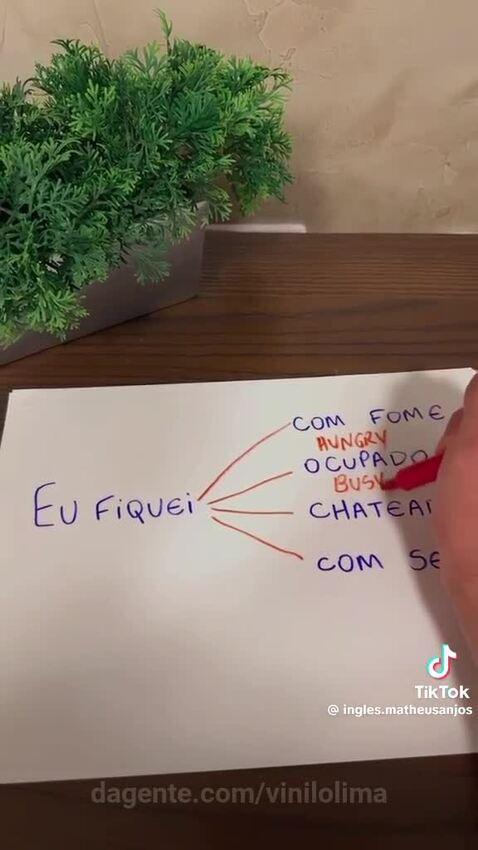 COM FOME
HUNGRY
OCUPADO
BUSY
EU FIQUEI
COM
TikTok
@ ingles.matheusanjos
dagente.com/vinilolima